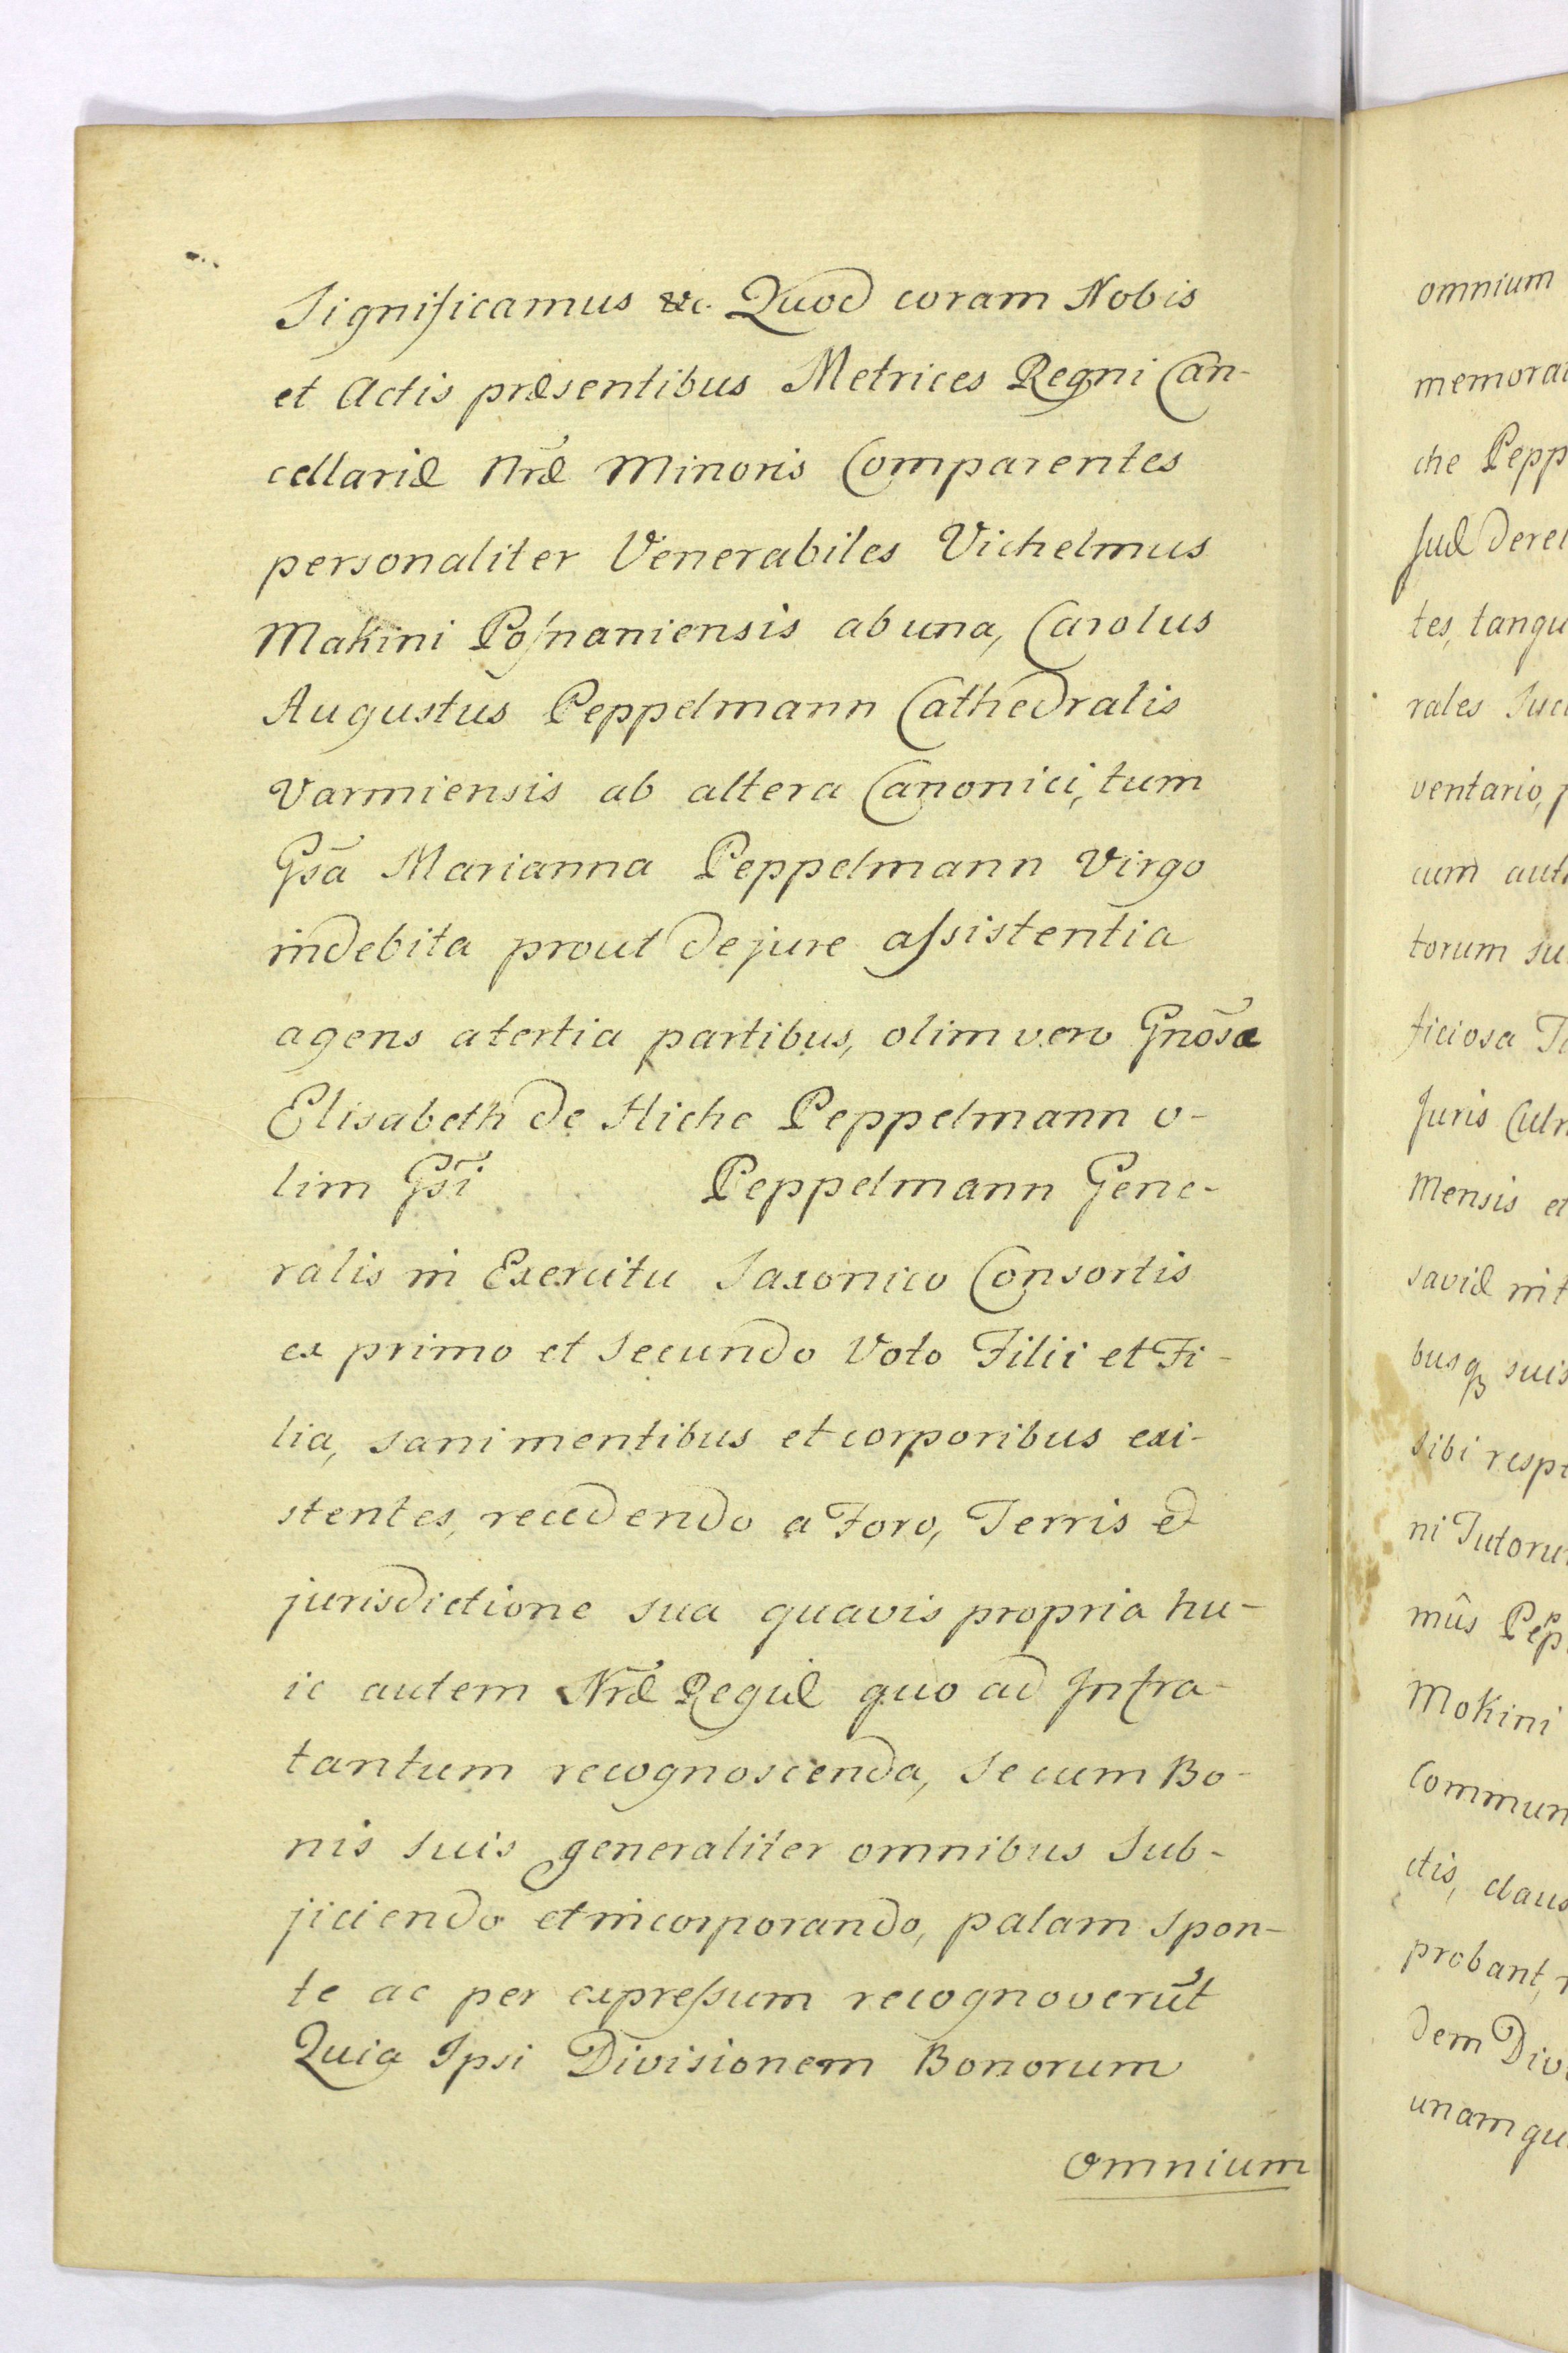 Significamus &c. Quod coram Nobis
et Actis præsentibus Metrices Regni Can-
cellariæ Nræ Minoris Comparentes
personaliter Venerabiles Vichelmus
Makini Posnaniensis ab una, Carolus
Augustus Peppelmann Cathedralis
Varmiensis ab altera Canonici, tum
Gsā Marianna Peppelmann Virgo
in debita prout de jure assistentia
agens a tertia partibus, olim vero Gnōsæ
Elisabeth de Hiche Peppelmann o-
lim Gsi Peppelmann Gene-
ralis in Exercitu Saxonico Consortis
ex primo et secundo Voto Filii et Fi-
lia, sani mentibus et corporibus exi-
stentes, recedendo a Foro, Terris et
jurisdictione sua quavis propria hu-
ic autem Nræ Regiæ quo ad Infra-
tantum recognoscenda, se cum Bo-
nis suis generaliter omnibus Sub-
jiciendo et incorporando, palam spon-
te ac per expressum recognoverūt
Quia Ipsi Divisionem Bonorum
omnium
omnium
memorat
che Pepp
suæ dere
tes, tanqu
rales Suc
ventario, p
cum aut
torum su
ficiosa
Juris Culm
Mensis et
saviæ int
busq suis
sibi resp
ni Tutoru
mûs Pepp
Mokini
Commun
ctis, claus
probant,
dem Div
unamqu